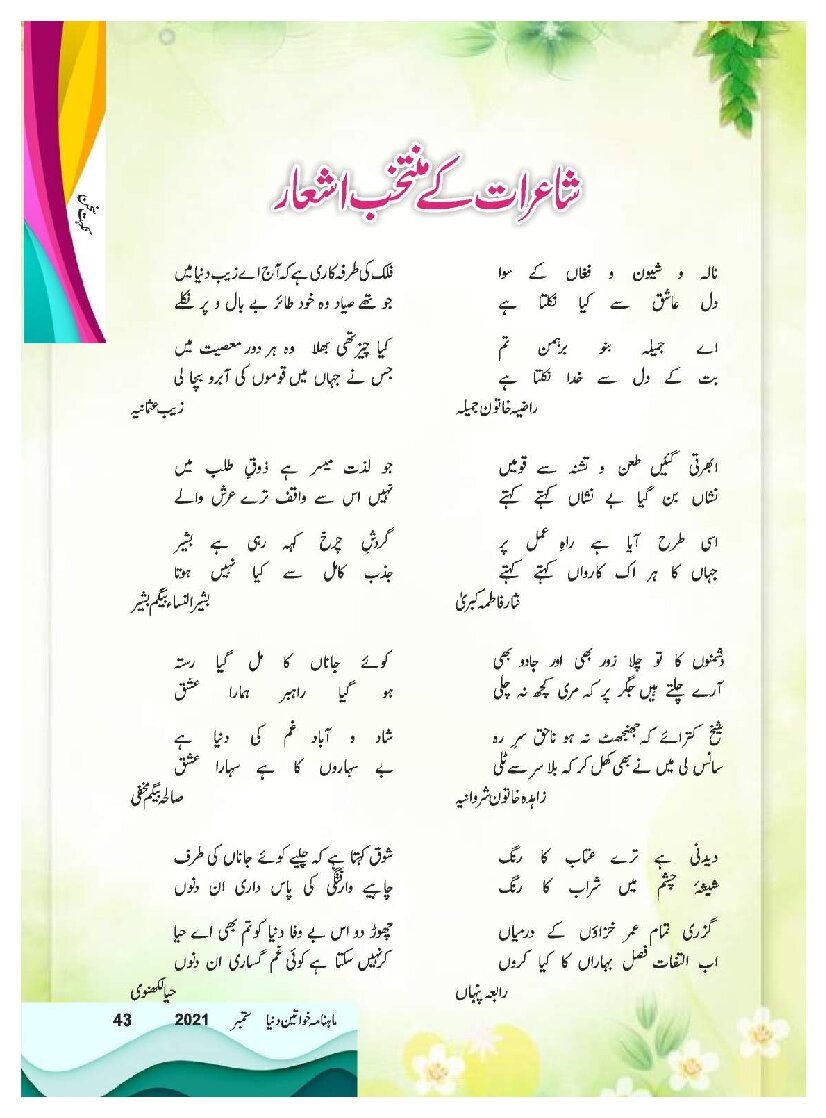 نکہت سخن
شاعرات کے منتخب اشعار
نالہ و شیون و فغاں کے سوا
دل عاشق سے کیا نکلتا ہے
اے جمیلہ بنو برہمن تم
بت کے دل سے خدا نکلتا ہے
راضیہ خاتون جمیلہ
ابھرتی گئیں طعن و تشنہ سے قومیں
نشاں بن گیا بے نشاں کہتے کہتے
اسی طرح آیا ہے راہِ عمل پر
جہاں کا ہر اک کارواں کہتے کہتے
نثار فاطمہ کبریٰ
دشمنوں کا تو چلا زور بھی اور جادو بھی
آرے چلتے ہیں جگر پر کہ مری کچھ نہ چلی
شیخ کترائے کہ جھنجھٹ نہ ہو ناحق سرِ رہ
سانس لی میں نے بھی کھل کر کہ بلا سر سے ٹلی
زاہدہ خاتون شروانیہ
دیدنی ہے ترے عتاب کا رنگ
شیشۂ چشم میں شراب کا رنگ
گزری تمام عمر خزاؤں کے درمیاں
اب التفات فصل بہاراں کا کیا کروں
رابعہ پنہاں
فلک کی طرفہ کاری ہے کہ آج اے زیب دنیا میں
جو تھے صیاد وہ خود طائر بے بال و پر نکلے
کیا چیز تھی بھلا وہ ہر دور معصیت میں
جس نے جہاں میں قوموں کی آبرو بچا لی
زیب عثمانیہ
جو لذت میسر ہے ذوقِ طلب میں
نہیں اس سے واقف ترے عرش والے
گردشِ چرخ کہہ رہی ہے بشیر
جذب کامل سے کیا نہیں ہوتا
بشیر النساء بیگم بشیر
کوئے جاناں کا مل گیا رستہ
ہو گیا راہبر ہمارا عشق
شاد و آباد غم کی دنیا ہے
بے سہاروں کا ہے سہارا عشق
صالحہ بیگم مخفی
شوق کہتا ہے کہ چلیے کوئے جاناں کی طرف
چاہیے وارفتگی کی پاس داری ان دنوں
چھوڑ دو اس بے وفا دنیا کو تم بھی اے حیا
کر نہیں سکتا ہے کوئی غم گساری ان دنوں
حیا لکھنوی
ماہنامہ خواتین دنیا ستمبر 2021 43